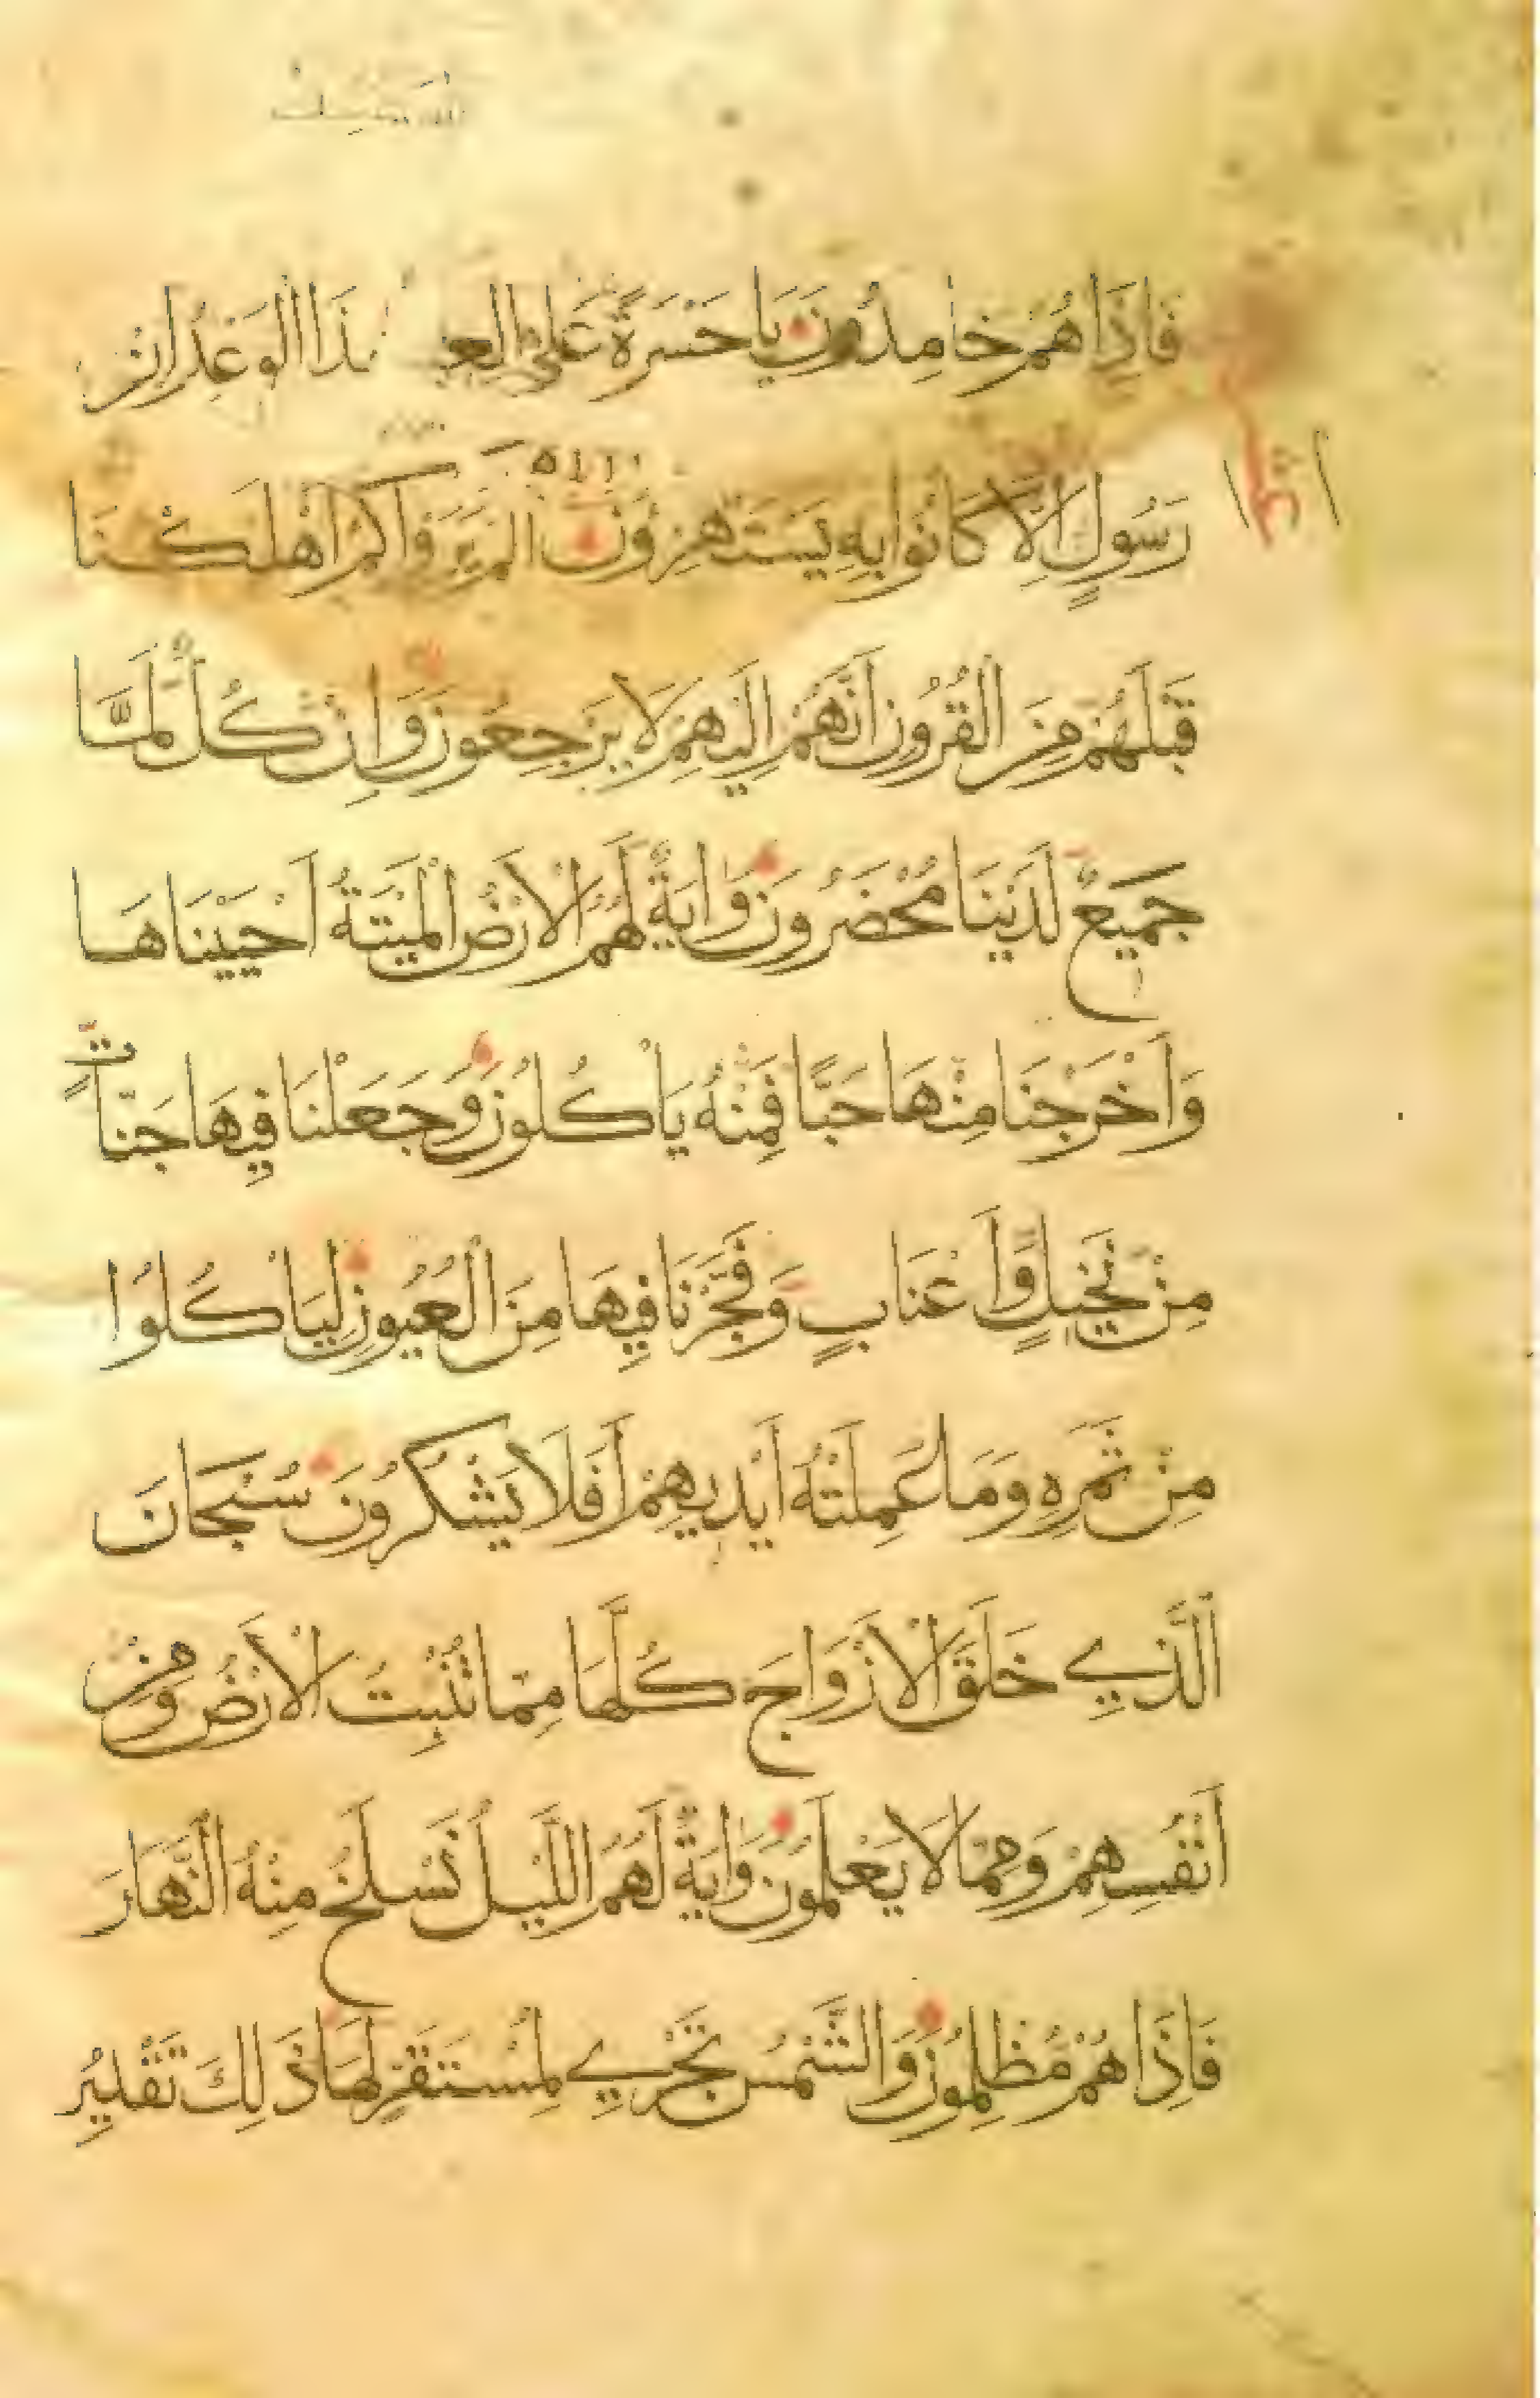 فَاِذَا هُمْ خَامِدُونَ يَا حَسْرَةً عَلَى العِـ ـذَا الْوَعْدُ اِنْ
رَسُولٍ اِلَّا كَانُوا بِهِ يَسْتَهْزِؤُنَ اَلَمْ يَرَوْا كَمْ اَهْلَكْنَا
قَبْلَهُمْ مِنَ الْقُرُونِ اَنَّهُمْ اِلَيْهِمْ لَا يَرْجِعُونَ وَاِنْ كُلٌّ لَمَّا
جَمِيعٌ لَدَيْنَا مُحْضَرُونَ وَاٰيَةٌ لَهُمُ الْاَرْضُ الْمَيْتَةُ اَحْيَيْنَاهَا
وَاَخْرَجْنَا مِنْهَا حَبًّا فَمِنْهُ يَاْكُلُونَ وَجَعَلْنَا فِيهَا جَنَّاتٍ
مِنْ نَخِيلٍ وَاَعْنَابٍ وَفَجَّرْنَا فِيهَا مِنَ الْعُيُونِ لِيَاْكُلُوا
مِنْ ثَمَرِهِ وَمَا عَمِلَتْهُ اَيْدِيهِمْ اَفَلَا يَشْكُرُونَ سُبْحَانَ
الَّذِي خَلَقَ الْاَزْوَاجَ كُلَّهَا مِمَّا تُنْبِتُ الْاَرْضُ وَمِنْ
اَنْفُسِهِمْ وَمِمَّا لَا يَعْلَمُونَ وَاٰيَةٌ لَهُمُ اللَّيْلُ نَسْلَخُ مِنْهُ النَّهَارَ
فَاِذَا هُمْ مُظْلِمُونَ وَالشَّمْسُ تَجْرِي لِمُسْتَقَرٍّ لَهَا ذَلِكَ تَقْدِيرُ